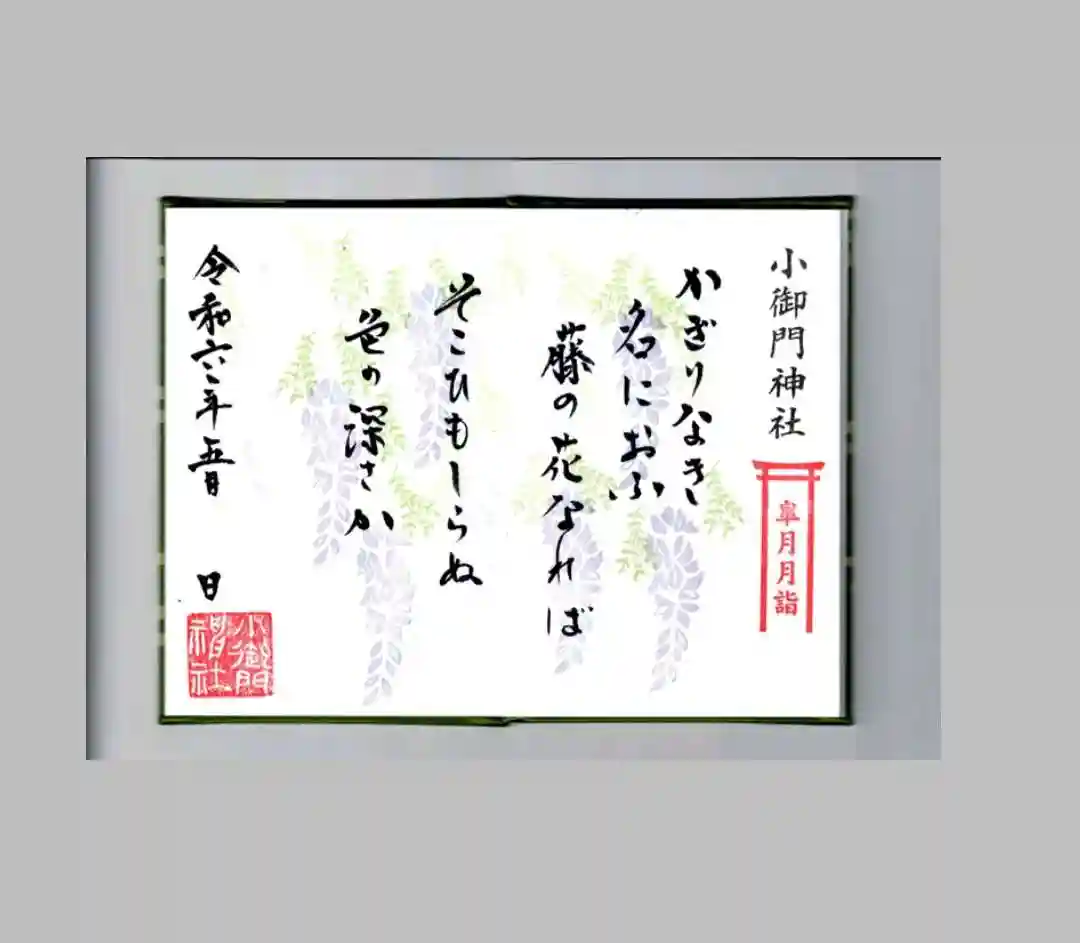 小御門神社
皐月月詣
かぎりなき
名におふ
藤の花なれば
そこひもしらぬ
色の深さか
令和六年五月 日
小御門神社